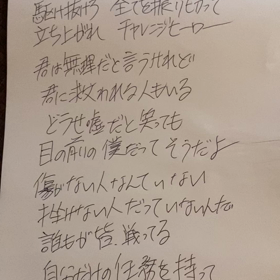 駆け抜けろ 全てを振り切って
立ち上がれ チャレンジヒーロー
君は無理だと言うけれど
君に救われる人もいる
どうせ嘘だと笑っても
目の前の僕だってそうだよ
傷がない人なんていない
挫けない人だっていないんだ
誰もが皆、戦ってる
自分だけの任務を持って